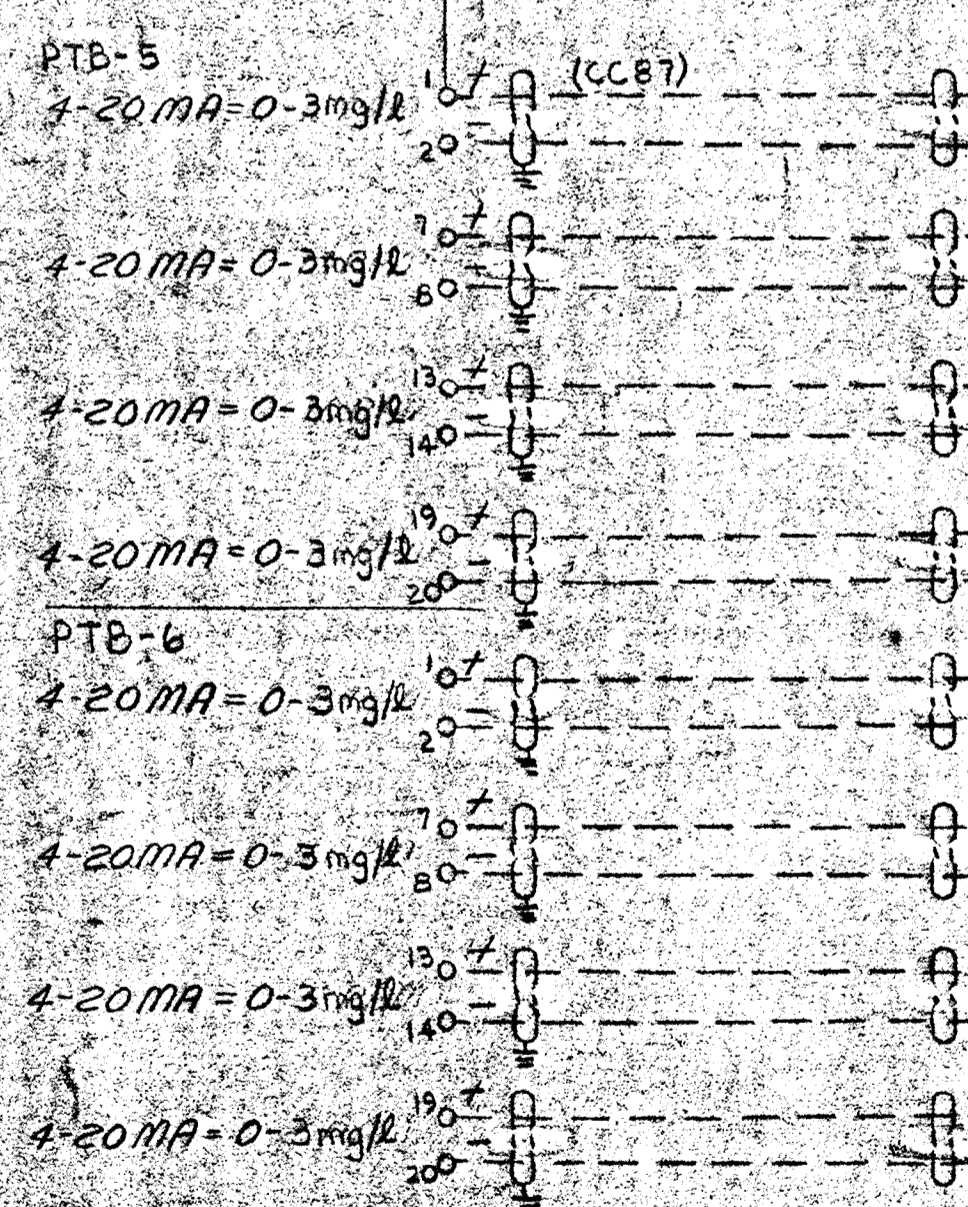 PTB-5
(CC87)
4-20 MA = 0-3mg/l 1 +
2 -
4-20 MA = 0-3mg/l 7 +
8 -
4-20 MA = 0-3mg/l 13 +
14 -
4-20 MA = 0-3mg/l 19 +
20 -
PTB-6
4-20 MA = 0-3mg/l 1 +
2 -
4-20 MA = 0-3mg/l 7 +
8 -
4-20 MA = 0-3mg/l 13 +
14 -
4-20 MA = 0-3mg/l 19 +
20 -